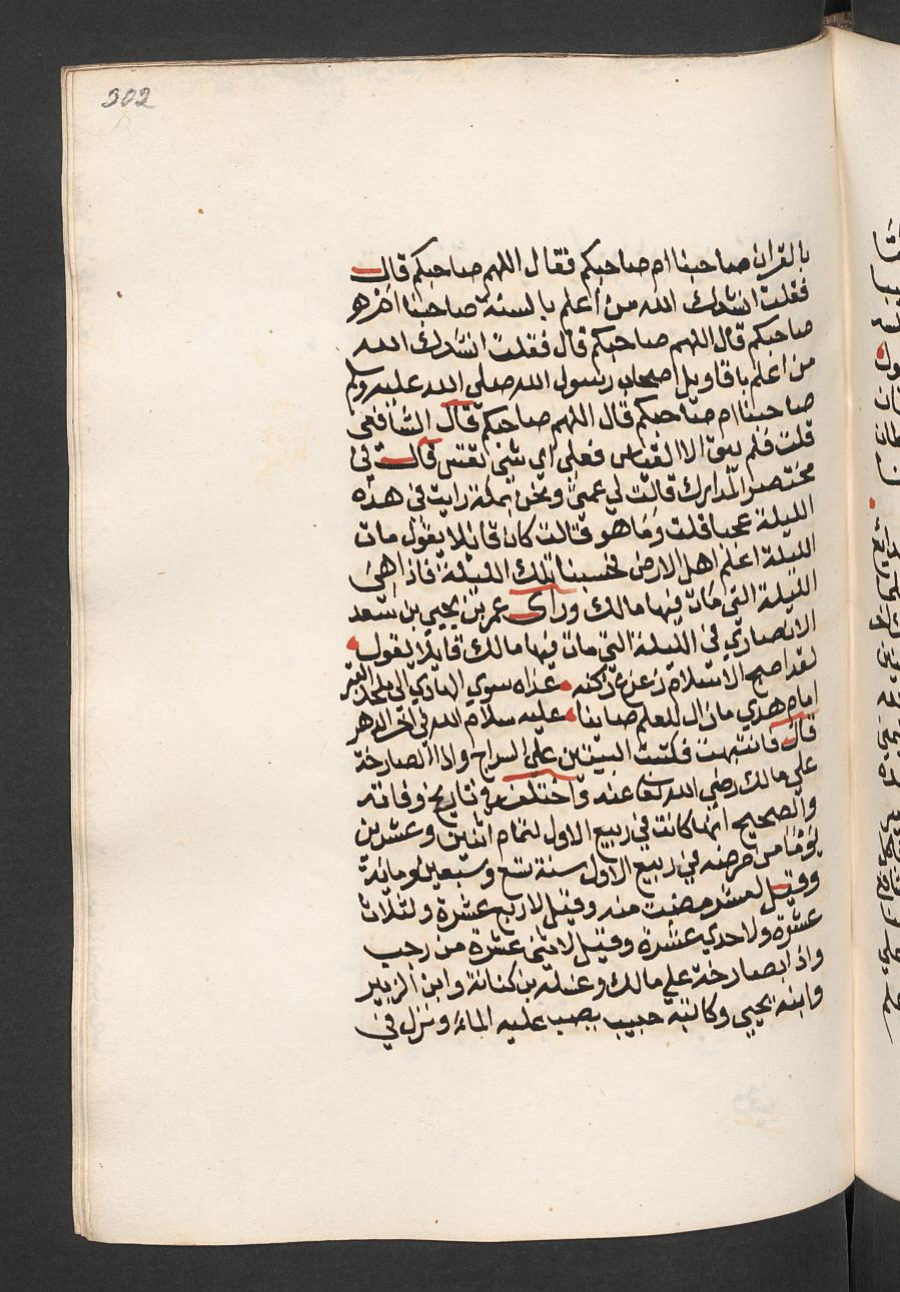 302
بالقران صاحبنا ام صاحبكم فقال اللهم صاحبكم قال
فقلت انشدك الله من أعلم بالسنه صاحبنا ام
صاحبكم قال اللهم صاحبكم قال فقلت انشدك الله
من اعلم باقاويل اصحاب رسول الله صلى الله عليه وسلم
صاحبنا ام صاحبكم قال اللهم صاحبكم قال الشافعى
قلت فلم يبق الا القياس فعلى اي شى تقيس قال في
مختصر المدارك قالت لي عمتى ونحن بمكة رايت فى هذه
الليلة عجبا قلت وما هو قالت كان قائلا يقول مات
الليلة اعلم اهل الارض فحسبنا تلك الليلة فاذا هى
الليلة التي مات فيها مالك وراى عمر بن يحيى بن سعد
الانصاري فى الليلة التي مات فيها مالك قايلا يقول
لقد اصبح الاسلام زعزع ركنه غداه ثوي الهادي الى ملحد القبر
امام هدي مازال للعلم صاينا عليه سلام الله فى اخر الدهر
قال فانتبهت فكتبت البيتين على السراج واذا الصارخة
على مالك رضي الله تعالى عنه واختلف في تاريخ وفاته
والصحيح انها كانت في ربيع الاول لتمام اثنين وعشرين
يوما من مرضه في ربيع الاول سنة تسع وسبعين ومائة
وقيل لعشر مضت منه وقيل لاربع عشرة ولثلاث
عشرة ولاحدي عشرة وقيل لاثنى عشرة من رجب
واذا بصارخة على مالك وغسله بن كنانة وابن الزبير
وابنه يحيى وكاتبه حبيب يصب عليه الماء ونزل في